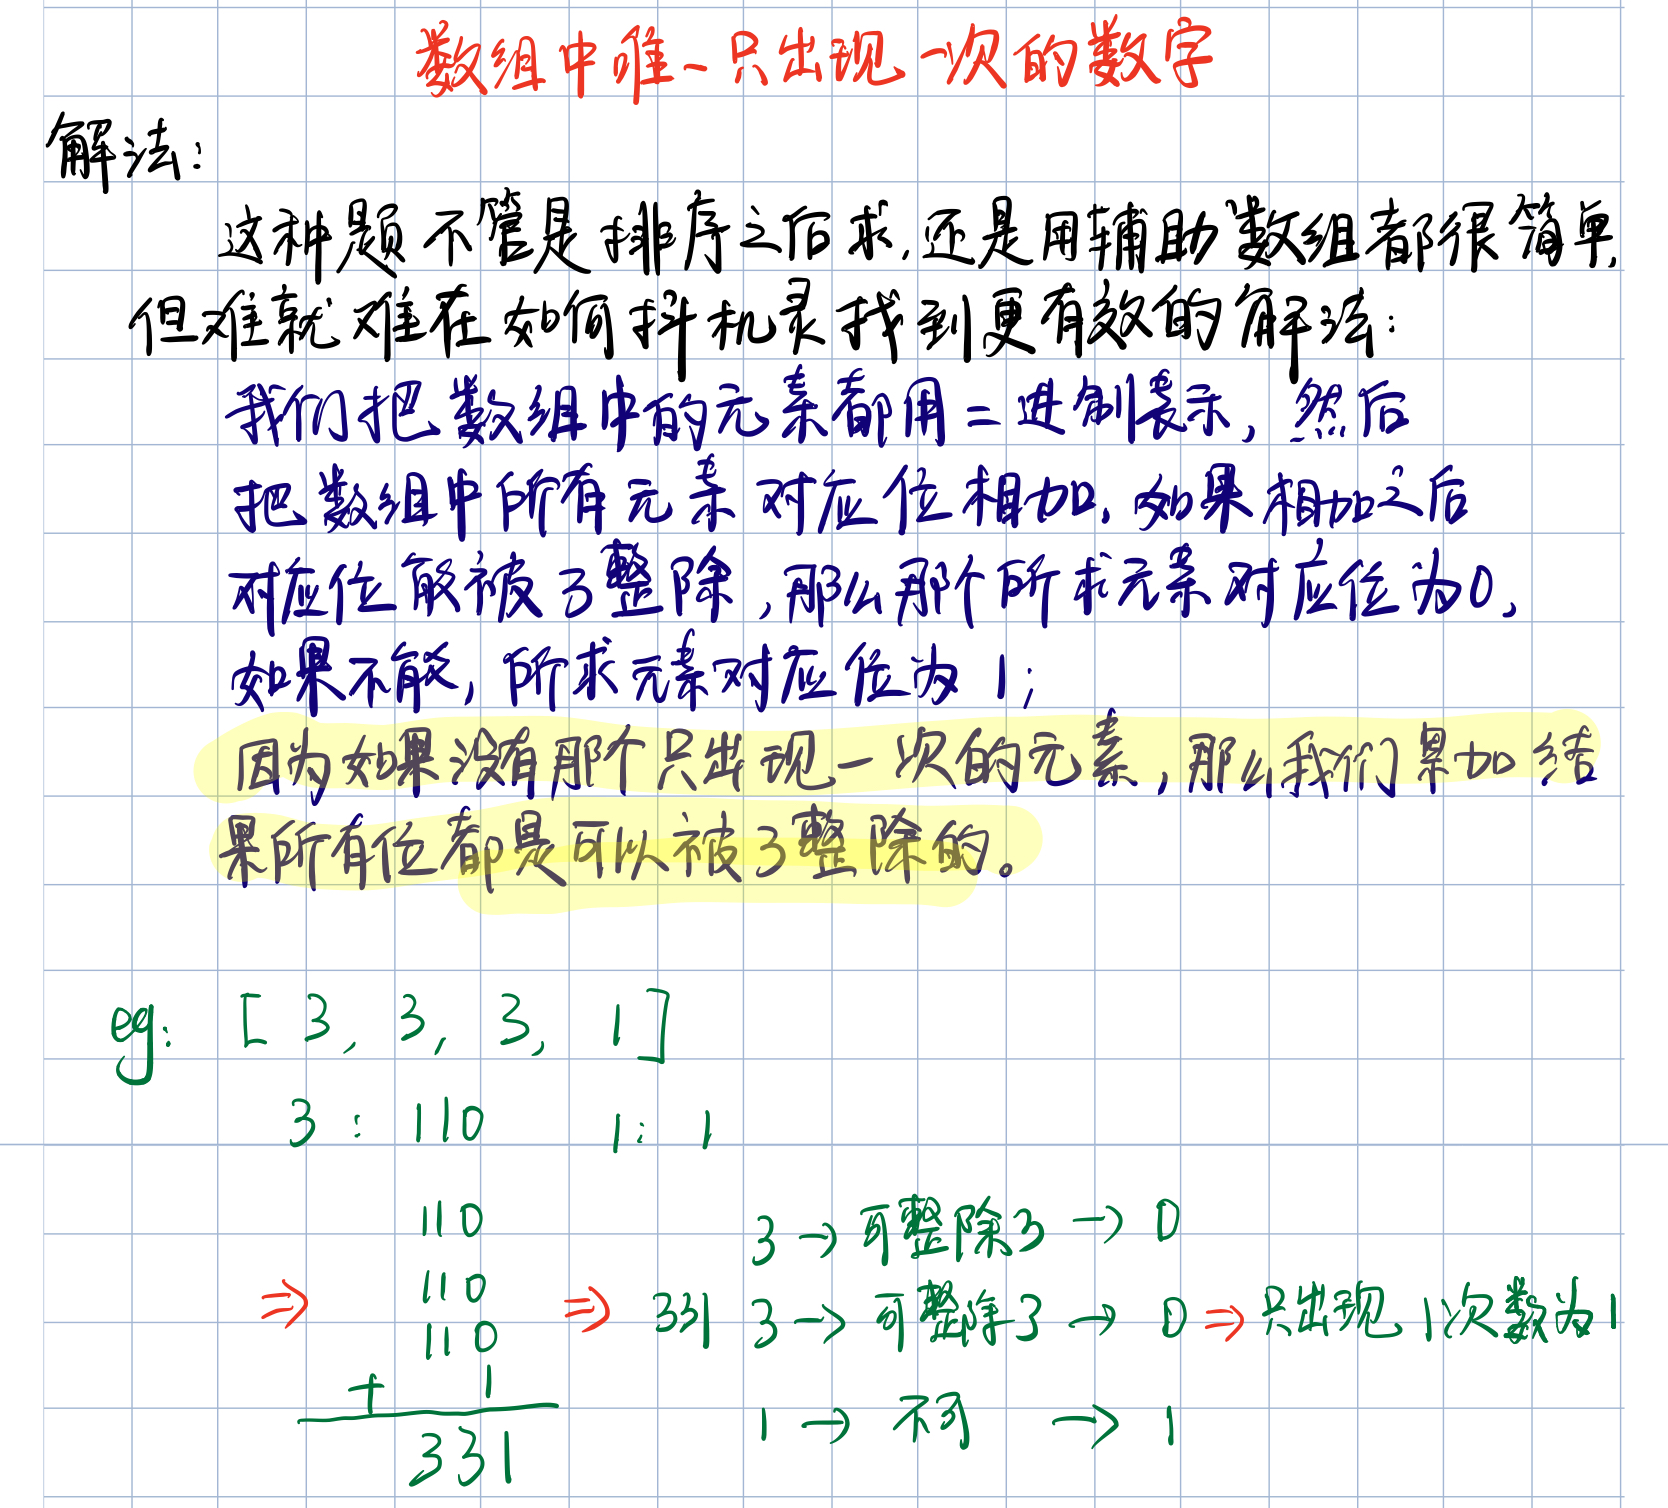 数组中唯一只出现一次的数字
解法:
这种题不管是排序之后求,还是用辅助数组都很简单,
但难就难在如何抖机灵找到更有效的解法:
我们把数组中的元素都用二进制表示,然后
把数组中所有元素对应位相加,如果相加之后
对应位能被3整除,那么那个所求元素对应位为0,
如果不能,所求元素对应位为1;
因为如果没有那个只出现一次的元素,那么我们累加结
果所有位都是可以被3整除的。
eg: [3, 3, 3, 1]
3: 110 1: 1
110
110
110
+ 1
331
⇒ ⇒ 331
3 → 可整除3 → 0
3 → 可整除3 → 0 ⇒ 只出现1次数为1
1 → 不可 → 1